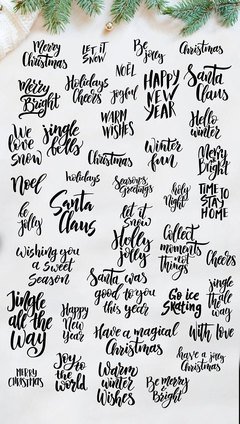 Merry
Christmas
LET IT
SNOW
Be
jolly
Christmas
NOËL
Merry
& Bright
Holidays
Cheers
joyful
HAPPY
NEW
YEAR
Santa
Claus
WARM
WISHES
Hello
winter
We
love
Snow
jingle
bells
Christmas
Winter
fun
Merry
& Bright
Noel
holidays
Season's
greetings
holy
Night
TIME TO
STAY
HOME
be
jolly
Santa
Claus
let it
Snow
Holly
jolly
Collect
moments
not
things
Cheers
Wishing you
a Sweet
Season
Santa was
good to you
this year
jingle
all the
way
Jingle
all the
way
Happy
New
Year
Go ice
Skating
Have a magical
Christmas
With love
MERRY
CHRISTMAS
Joy
to the
world
Warm
winter
Wishes
Be merry
& Bright
have a jolly
Christmas